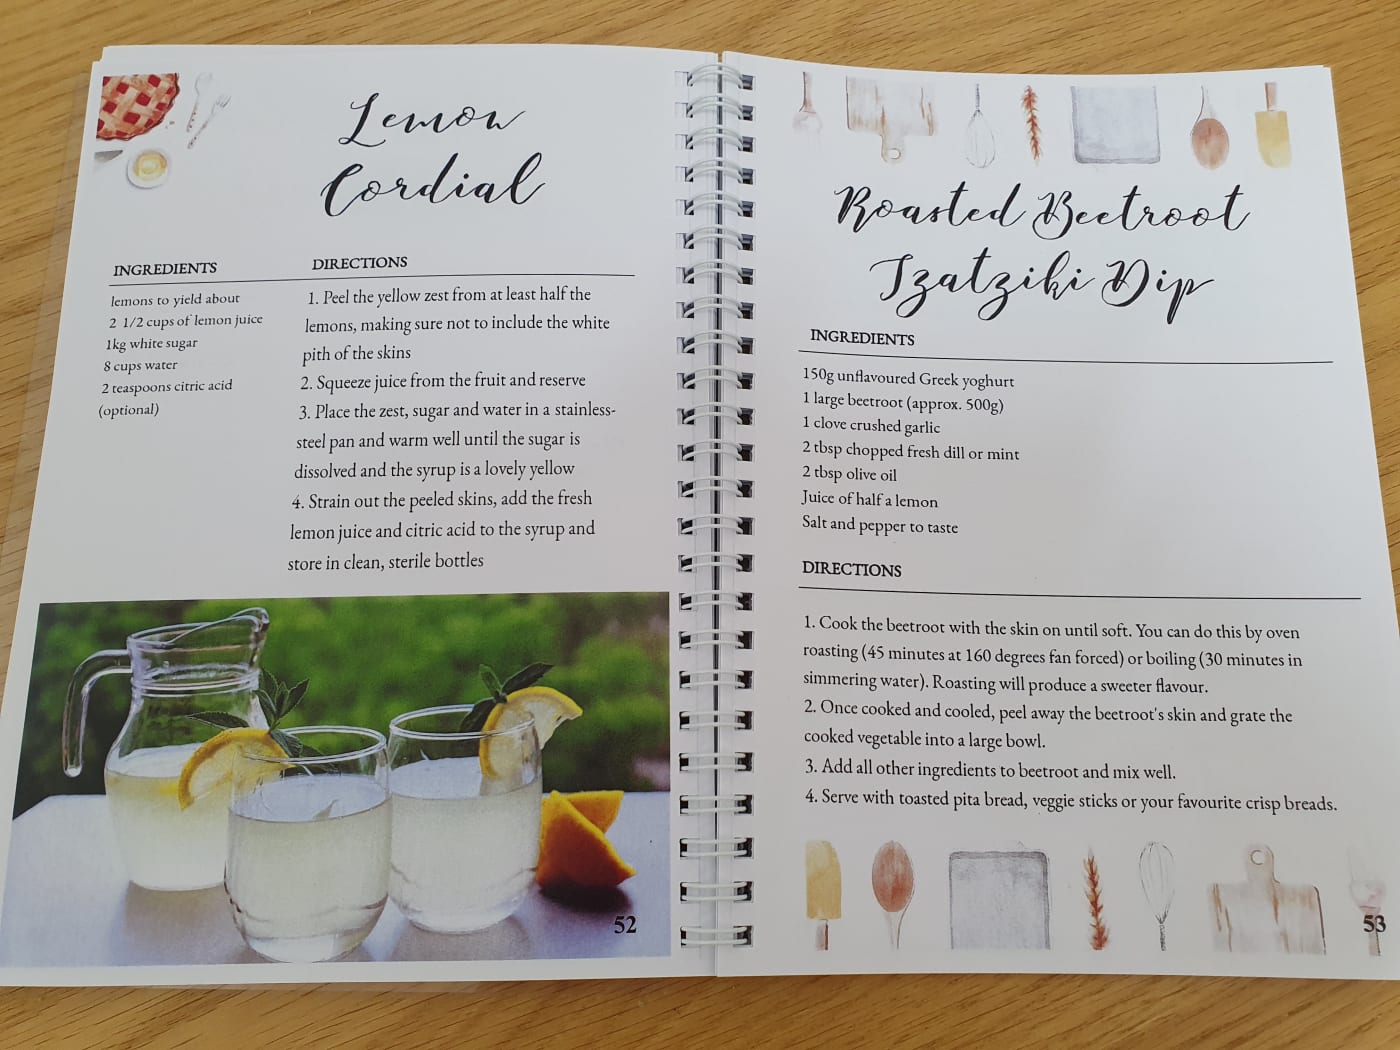 Lemon
Cordial
INGREDIENTS
lemons to yield about
2 1/2 cups of lemon juice
1kg white sugar
8 cups water
2 teaspoons citric acid
(optional)
DIRECTIONS
1. Peel the yellow zest from at least half the
lemons, making sure not to include the white
pith of the skins
2. Squeeze juice from the fruit and reserve
3. Place the zest, sugar and water in a stainless-
steel pan and warm well until the sugar is
dissolved and the syrup is a lovely yellow
4. Strain out the peeled skins, add the fresh
lemon juice and citric acid to the syrup and
store in clean, sterile bottles
52
Roasted Beetroot
Tzatziki Dip
INGREDIENTS
150g unflavoured Greek yoghurt
1 large beetroot (approx. 500g)
1 clove crushed garlic
2 tbsp chopped fresh dill or mint
2 tbsp olive oil
Juice of half a lemon
Salt and pepper to taste
DIRECTIONS
1. Cook the beetroot with the skin on until soft. You can do this by oven
roasting (45 minutes at 160 degrees fan forced) or boiling (30 minutes in
simmering water). Roasting will produce a sweeter flavour.
2. Once cooked and cooled, peel away the beetroot's skin and grate the
cooked vegetable into a large bowl.
3. Add all other ingredients to beetroot and mix well.
4. Serve with toasted pita bread, veggie sticks or your favourite crisp breads.
53